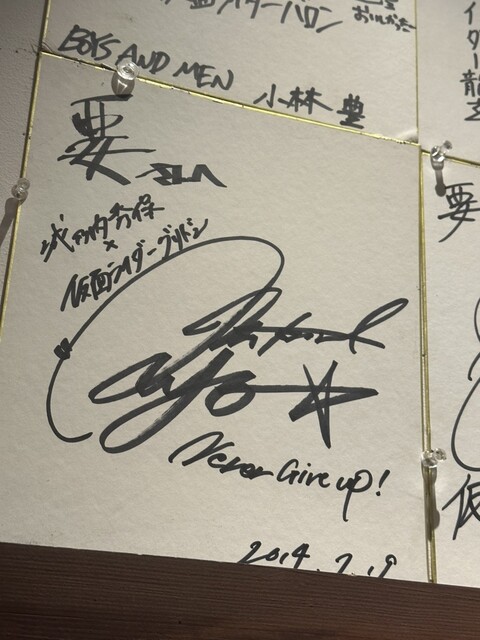 ライダーバロン
おいしかった
BOYS AND MEN 小林 豊
イダー龍玄
要
城之内秀保
×
仮面ライダーグリドン
Never Give up!
2014.7.9
要
仮